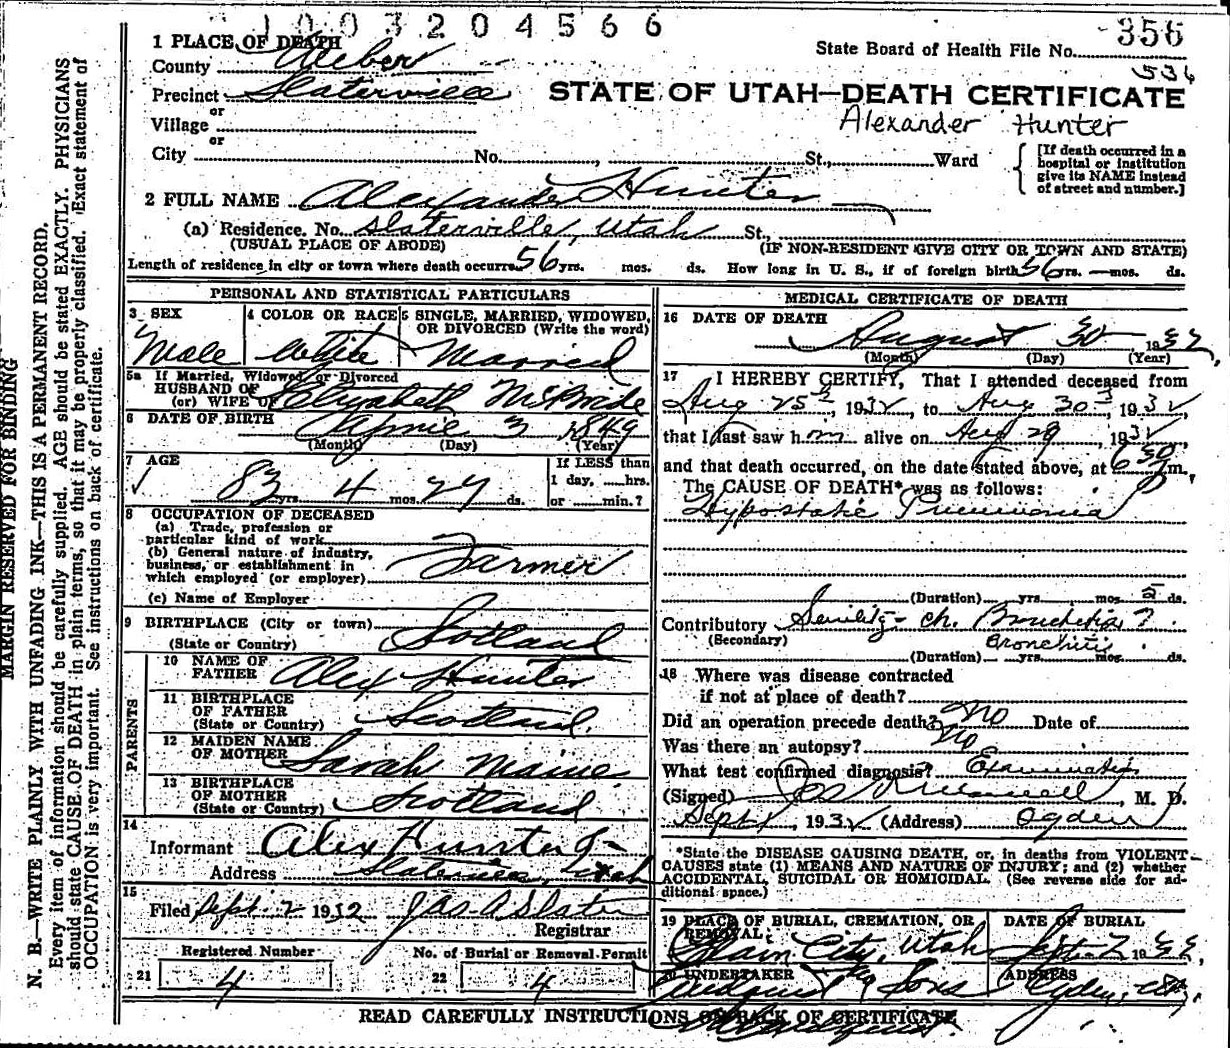 1003204566
356
1 PLACE OF DEATH
State Board of Health File No.
County Weber
536
Precinct Slaterville
STATE OF UTAH—DEATH CERTIFICATE
or
Village
Alexander Hunter
or
City No. , St., Ward
[If death occurred in a hospital or institution give its NAME instead of street and number.]
2 FULL NAME Alexander Hunter
(a) Residence. No. Slaterville, Utah St.,
(USUAL PLACE OF ABODE) (IF NON-RESIDENT GIVE CITY OR TOWN AND STATE)
Length of residence in city or town where death occurred 56 yrs. mos. ds. How long in U. S., if of foreign birth 56 yrs. — mos. ds.
PERSONAL AND STATISTICAL PARTICULARS
3 SEX
Male
4 COLOR OR RACE
White
5 SINGLE, MARRIED, WIDOWED, OR DIVORCED (Write the word)
Married
5a If Married, Widowed or Divorced
HUSBAND OF
(or) WIFE OF Elizabeth McBride
6 DATE OF BIRTH 3 1849
(Month) (Day) (Year)
7 AGE
83 yrs. 4 mos. 27 ds.
If LESS than
1 day, hrs.
or min.?
8 OCCUPATION OF DECEASED
(a) Trade, profession or
particular kind of work
(b) General nature of industry,
business, or establishment in
which employed (or employer)
Farmer
(c) Name of Employer
9 BIRTHPLACE (City or town)
(State or Country)
Scotland
PARENTS
10 NAME OF
FATHER Alex Hunter
11 BIRTHPLACE
OF FATHER
(State or Country) Scotland
12 MAIDEN NAME
OF MOTHER Sarah
13 BIRTHPLACE
OF MOTHER
(State or Country) Scotland
14
Informant Alex Hunter Jr
Address Utah
15
Filed Sept 2 1932 Jas A Slater
Registrar
Registered Number
21 4
No. of Burial or Removal Permit
22 4
MEDICAL CERTIFICATE OF DEATH
16 DATE OF DEATH
August 30 1932,
(Month) (Day) (Year)
17 I HEREBY CERTIFY, That I attended deceased from
Aug 25, 1932, to Aug 30, 1932,
that I last saw h m alive on Aug 29, 1932,
and that death occurred, on the date stated above, at 6 30 P m.,
The CAUSE OF DEATH* was as follows:
Hypostatic Pneumonia
(Duration) yrs. mos. 5 ds.
Contributory Senility - ch. Bronchitis ?
(Secondary) Bronchitis
(Duration) yrs. mos. ds.
18 Where was disease contracted
if not at place of death?
Did an operation precede death? No Date of
Was there an autopsy? No
What test confirmed diagnosis? Examination
(Signed) , M. D.
Sept 1, 1932 (Address) Ogden
*State the DISEASE CAUSING DEATH, or, in deaths from VIOLENT
CAUSES state (1) MEANS AND NATURE OF INJURY; and (2) whether
ACCIDENTAL, SUICIDAL OR HOMICIDAL. (See reverse side for ad-
ditional space.)
19 PLACE OF BURIAL, CREMATION, OR
REMOVAL
Plain City, Utah
DATE OF BURIAL
Sept 2 1932,
20 UNDERTAKER
Lindquist & Sons
ADDRESS
Ogden,
READ CAREFULLY INSTRUCTIONS ON BACK OF CERTIFICATE
MARGIN RESERVED FOR BINDING
N. B.—WRITE PLAINLY WITH UNFADING INK—THIS IS A PERMANENT RECORD.
Every item of information should be carefully supplied. AGE should be stated EXACTLY. PHYSICIANS
should state CAUSE OF DEATH in plain terms, so that it may be properly classified. Exact statement of
OCCUPATION is very important. See instructions on back of certificate.